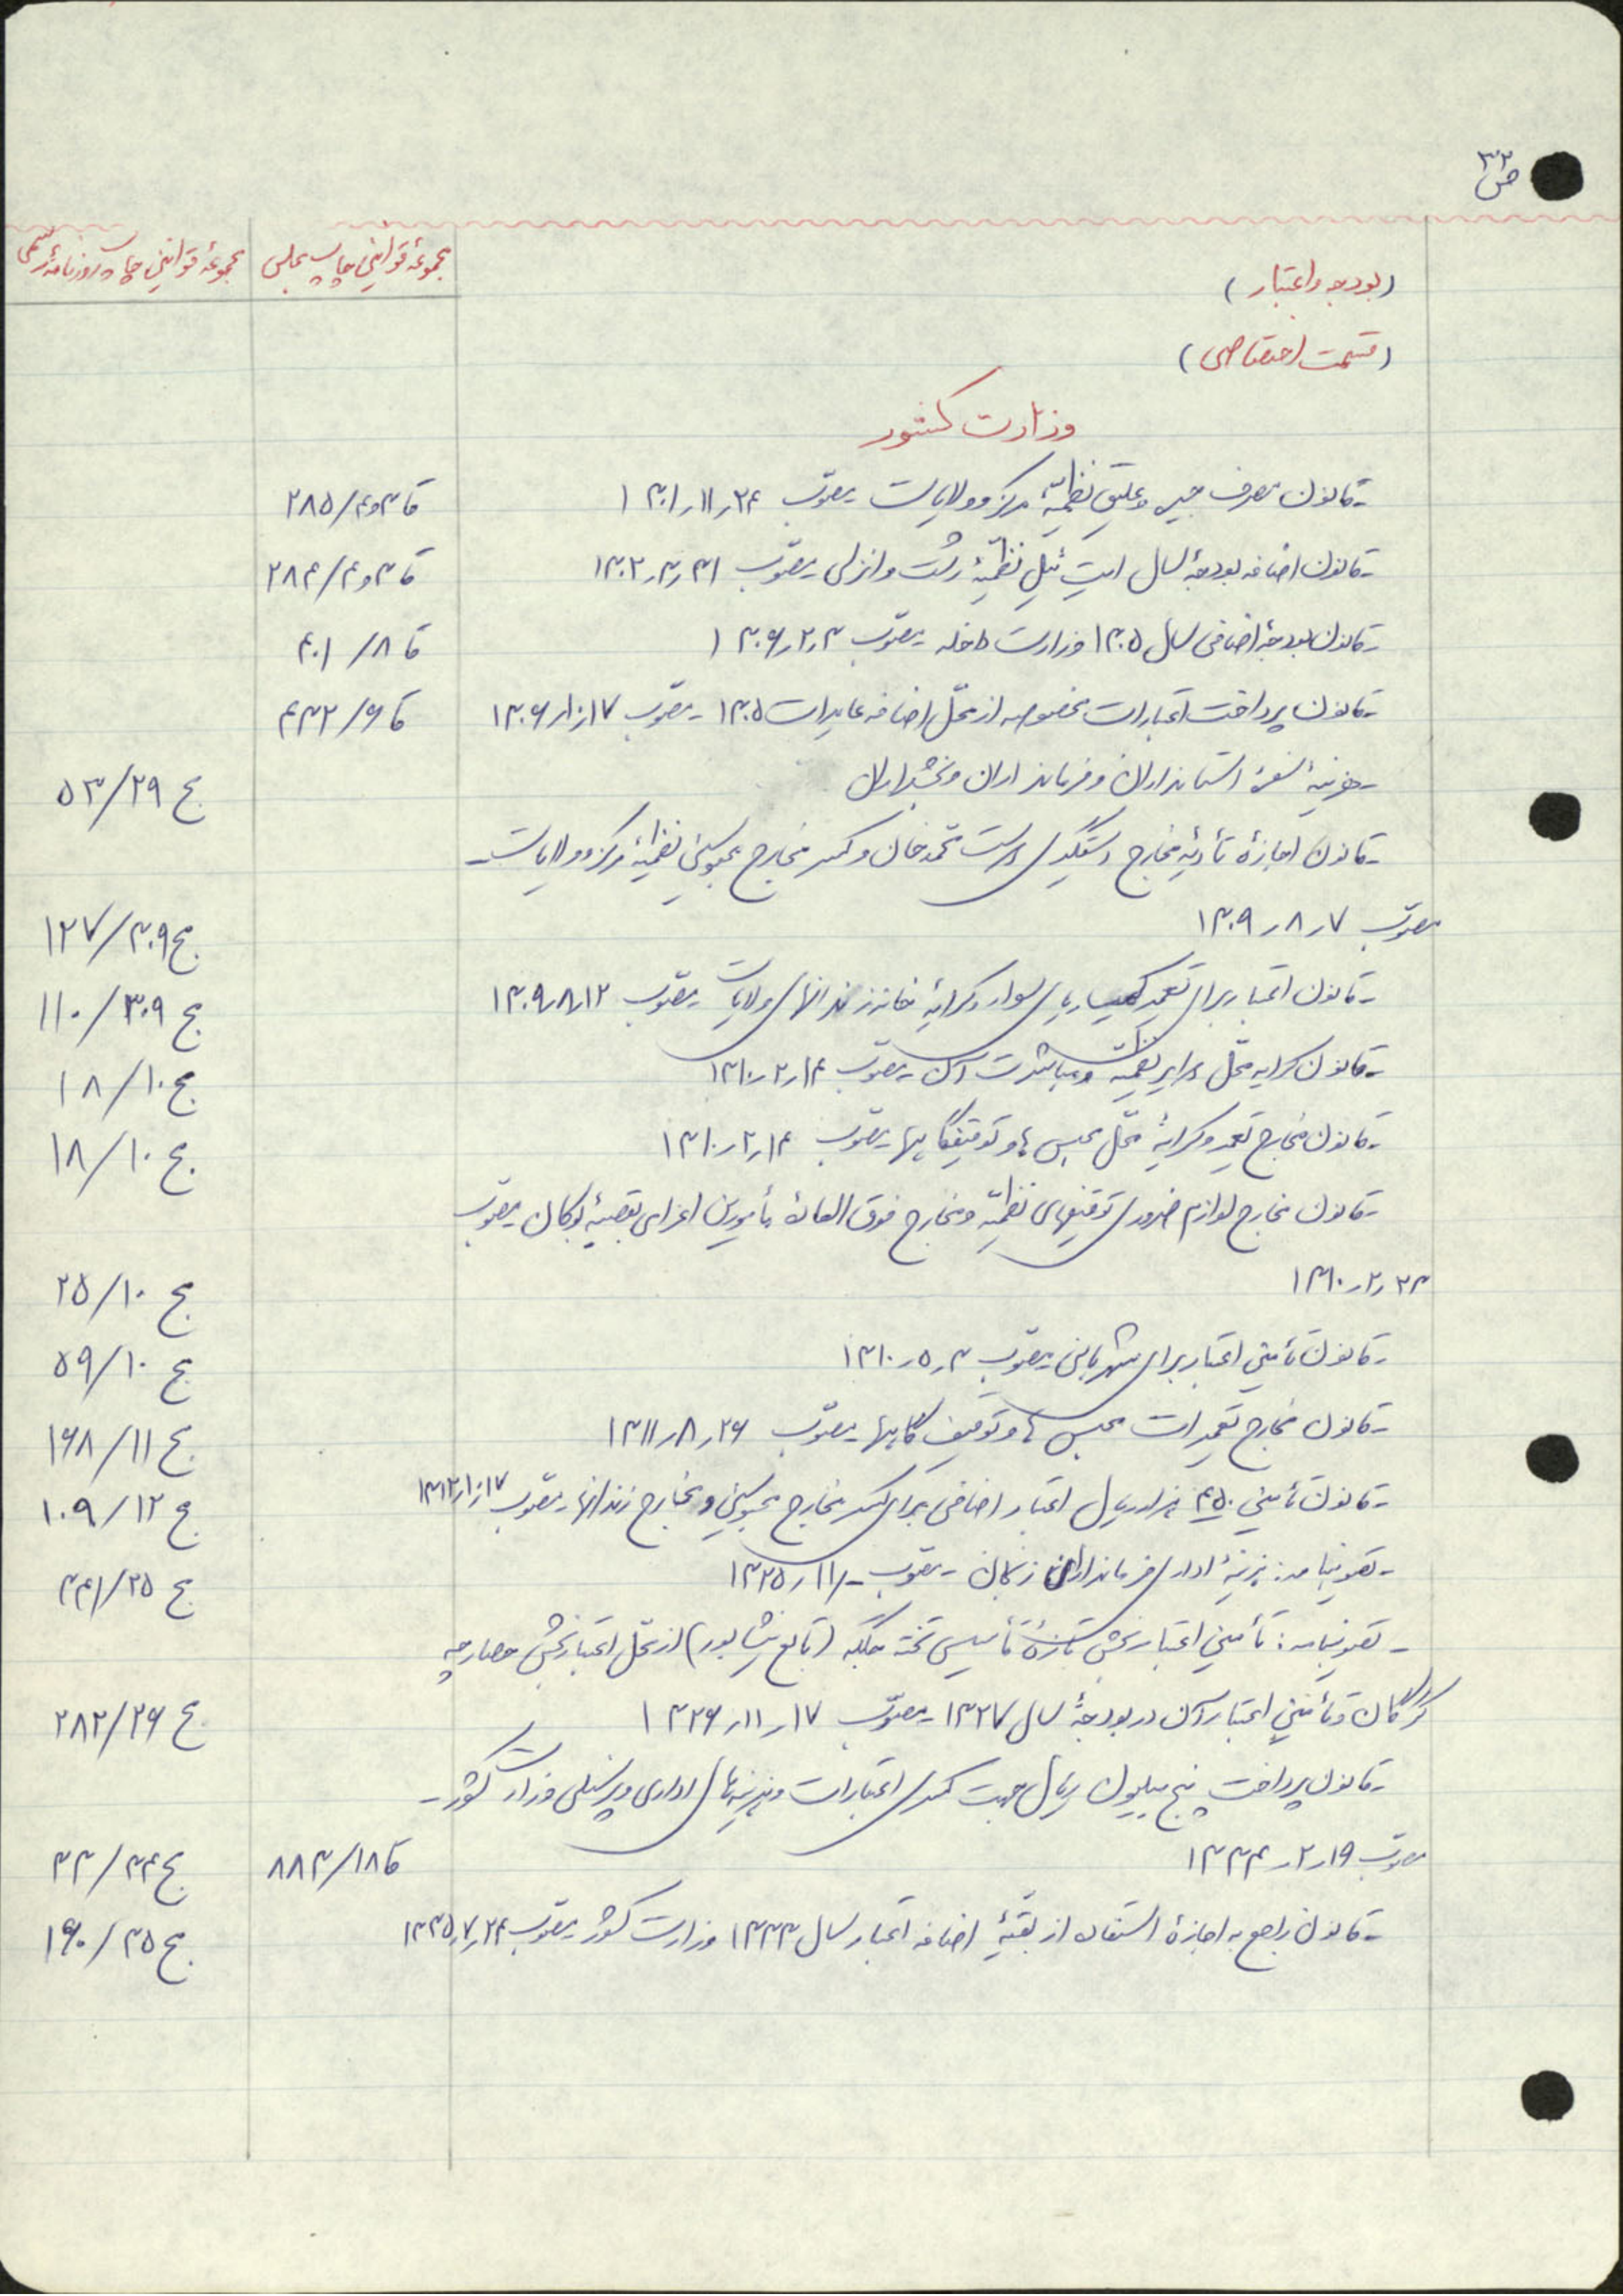 ص ۳۲
مجموعهٔ قوانین چاپ مجلس
مجموعهٔ قوانین چاپ روزنامهٔ رسمی
(بودجه و اعتبار)
(قسمت اختصاصی)
وزارت کشور
- قانون مصرف جیره و علیق نظمیهٔ مرکز و ولایات مصوّب ۲۴ر۱۱ر۱۳۰۱ قا ۳و۴/۲۸۵
- قانون اضافه بودجهٔ سال ایت ئیل نظمیّهٔ رشت و انزلی مصوّب ۳۱ر۳ر۱۳۰۲ قا ۳و۴/۲۸۴
- قانون بودجهٔ اضافی سال ۱۳۰۵ وزارت داخله مصوّب ۳ر۲ر۱۳۰۶ قا ۸/۴۰۱
- قانون پرداخت اعتبارات مخصوصه از محلّ اضافه عایدات ۱۳۰۵ - مصوّب ۱۷ر۱۰ر۱۳۰۶ قا ۶/۴۳۲
- هزینهٔ سفرهٔ استانداران و فرمانداران و بخشداران ج ۲۹/۵۳
- قانون اجازهٔ تأدیهٔ مخارج دستگیری دوست محمّدخان و کسر مخارج محبوسین نظمیّهٔ مرکز و ولایات -
مصوّب ۷ر۸ر۱۳۰۹ ج ۳۰۹/۱۲۷
- قانون اعتبار برای تعمیر کمیساریای سوار و کرایهٔ خانه زندانهای ولایات مصوّب ۱۲ر۸ر۱۳۰۹ ج ۳۰۹/۱۱۰
- قانون کرایه محلّ دوایر نظمیّه و مباشرت ارگ - مصوّب ۱۴ر۲ر۱۳۱۰ ج ۱۰/۱۸
- قانون مخارج تعمیر و کرایهٔ محلّ محبس‌ها و توقیفگاهها - مصوّب ۱۴ر۲ر۱۳۱۰ ج ۱۰/۱۸
- قانون مخارج لوازم ضروری توقیفهای نظمیّه و مخارج فوق العادهٔ مأمورین اعزامی بقصبهٔ بوکان مصوّب
۲۳ر۲ر۱۳۱۰ ج ۱۰/۲۵
- قانون تأمین اعتبار برای شهربانی مصوّب ۳ر۵ر۱۳۱۰ ج ۱۰/۵۹
- قانون مخارج تعمیرات محبس‌ها و توقیف گاهها - مصوّب ۲۶ر۸ر۱۳۱۱ ج ۱۱/۱۶۸
- قانون تأمین ۴۵۰ هزار ریال اعتبار اضافی برای کسر مخارج محبوسین و مخارج زندانها - مصوّب ۱۷ر۱۰ر۱۳۱۲ ج ۱۲/۱۰۹
- تصویبنامه: هزینهٔ اداری فرمانداران زنجان - مصوّب -ر۱۱ر۱۳۲۵ ج ۲۵/۳۴۱
- تصویبنامه: تأمین اعتبار بخش تازهٔ تأسیس تخت جلگه (تابع نیشابور) از محلّ اعتبار بخش حصارچه
گرگان و تأمین اعتبار آن در بودجهٔ سال ۱۳۲۷ - مصوّب ۱۷ر۱۱ر۱۳۲۶ ج ۲۶/۲۸۲
- قانون پرداخت پنج میلیون ریال جهت کسری اعتبارات و هزینه‌های اداری و پرسنلی وزارت کشور -
مصوّب ۱۹ر۲ر۱۳۳۴ قا ۱۸/۸۸۳ ج ۳۴/۳۳
- قانون راجع به اجازهٔ استفاده از بقیّهٔ اضافه اعتبار سال ۱۳۳۳ وزارت کشور مصوّب ۲۴ر۷ر۱۳۳۵ ج ۳۵/۱۶۰